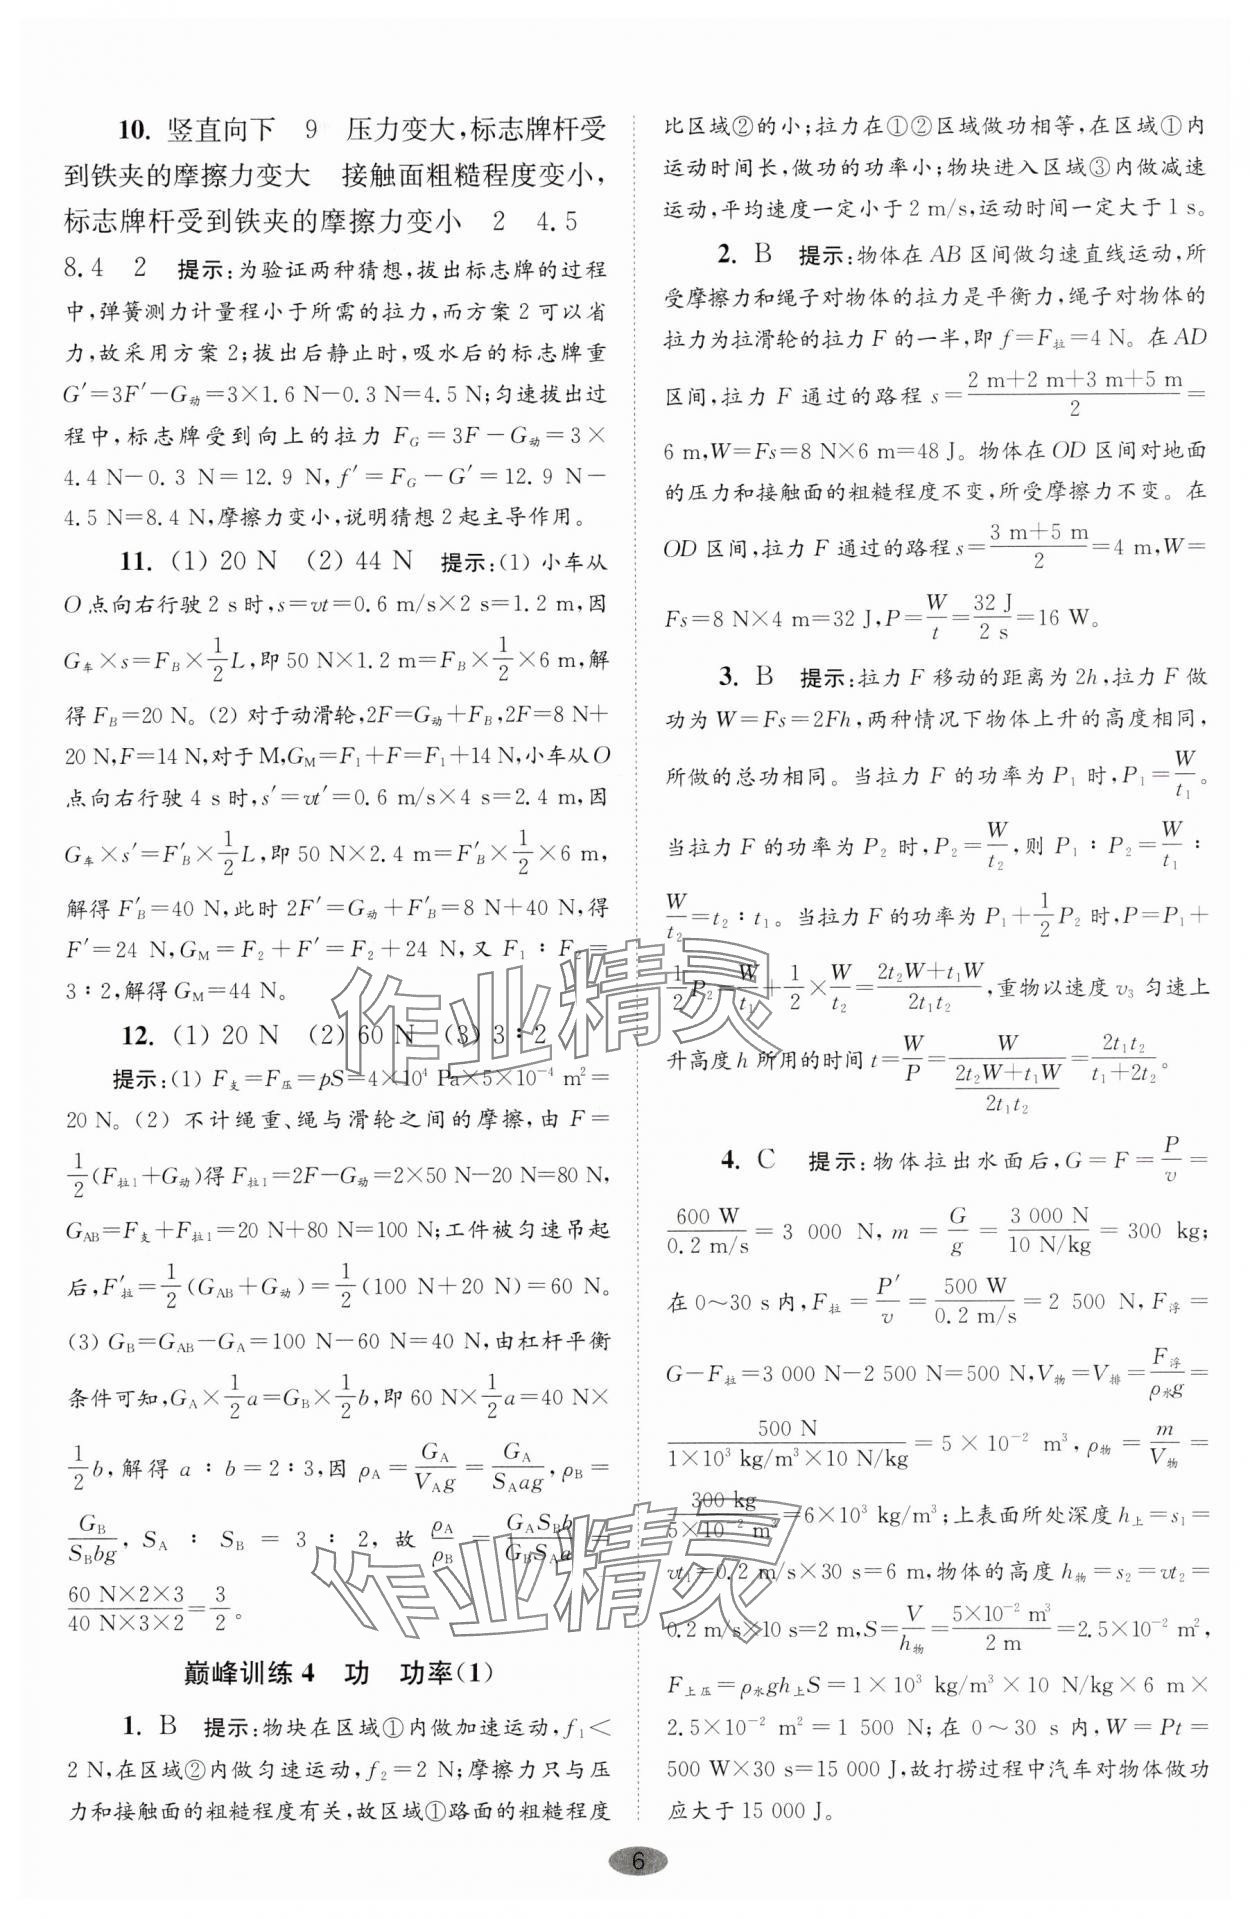 10. 竖直向下　9　压力变大,标志牌杆受
到铁夹的摩擦力变大　接触面粗糙程度变小,
标志牌杆受到铁夹的摩擦力变小　2　4.5
8.4　2　提示:为验证两种猜想,拔出标志牌的过程
中,弹簧测力计量程小于所需的拉力,而方案 2 可以省
力,故采用方案 2;拔出后静止时,吸水后的标志牌重
G′=3F′−G动=3×1.6 N−0.3 N=4.5 N;匀速拔出过
程中,标志牌受到向上的拉力 F_G=3F−G动=3×
4.4 N−0.3 N=12.9 N, f′=F_G−G′=12.9 N−
4.5 N=8.4 N,摩擦力变小,说明猜想 2 起主导作用。
11. (1) 20 N　(2) 44 N　提示:(1) 小车从
O 点向右行驶 2 s 时,s=vt=0.6 m/s×2 s=1.2 m,因
G车×s=F_B×1/2L,即 50 N×1.2 m=F_B×1/2×6 m,解
得 F_B=20 N。(2) 对于动滑轮,2F=G动+F_B,2F=8 N+
20 N,F=14 N,对于 M,G_M=F₁+F=F₁+14 N,小车从 O
点向右行驶 4 s 时,s′=vt′=0.6 m/s×4 s=2.4 m,因
G车×s′=F′_B×1/2L,即 50 N×2.4 m=F′_B×1/2×6 m,
解得 F′_B=40 N,此时 2F′=G动+F′_B=8 N+40 N,得
F′=24 N,G_M=F₂+F′=F₂+24 N,又 F₁∶F₂=
3∶2,解得 G_M=44 N。
12. (1) 20 N　(2) 60 N　(3) 3∶2
提示:(1) F支=F压=pS=4×10⁴ Pa×5×10⁻⁴ m²=
20 N。(2) 不计绳重、绳与滑轮之间的摩擦,由 F=
1/2(F拉1+G动)得 F拉1=2F−G动=2×50 N−20 N=80 N,
G_AB=F支+F拉1=20 N+80 N=100 N;工件被匀速吊起
后,F′拉=1/2(G_AB+G动)=1/2(100 N+20 N)=60 N。
(3) G_B=G_AB−G_A=100 N−60 N=40 N,由杠杆平衡
条件可知,G_A×1/2a=G_B×1/2b,即 60 N×1/2a=40 N×
1/2b,解得 a∶b=2∶3,因 ρ_A=G_A/(V_Ag)=G_A/(S_Aag),ρ_B=
G_B/(S_Bbg), S_A∶S_B=3∶2,故 ρ_A/ρ_B=G_AS_Bb/(G_BS_Aa)=
(60 N×2×3)/(40 N×3×2)=3/2。
巅峰训练 4　功　功率(1)
1. B　提示:物块在区域①内做加速运动,f₁<
2 N,在区域②内做匀速运动,f₂=2 N;摩擦力只与压
力和接触面的粗糙程度有关,故区域①路面的粗糙程度
比区域②的小;拉力在①②区域做功相等,在区域①内
运动时间长,做功的功率小;物块进入区域③内做减速
运动,平均速度一定小于 2 m/s,运动时间一定大于 1 s。
2. B　提示:物体在 AB 区间做匀速直线运动,所
受摩擦力和绳子对物体的拉力是平衡力,绳子对物体的
拉力为拉滑轮的拉力 F 的一半,即 f=F拉=4 N。在 AD
区间,拉力 F 通过的路程 s=(2 m+2 m+3 m+5 m)/2=
6 m,W=Fs=8 N×6 m=48 J。物体在 OD 区间对地面
的压力和接触面的粗糙程度不变,所受摩擦力不变。在
OD 区间,拉力 F 通过的路程 s=(3 m+5 m)/2=4 m,W=
Fs=8 N×4 m=32 J,P=W/t=32 J/2 s=16 W。
3. B　提示:拉力 F 移动的距离为 2h,拉力 F 做
功为 W=Fs=2Fh,两种情况下物体上升的高度相同,
所做的总功相同。当拉力 F 的功率为 P₁ 时,P₁=W/t₁。
当拉力 F 的功率为 P₂ 时,P₂=W/t₂,则 P₁∶P₂=W/t₁∶
W/t₂=t₂∶t₁。当拉力 F 的功率为 P₁+1/2P₂ 时,P=P₁+
1/2P₂=W/t₁+1/2×W/t₂=(2t₂W+t₁W)/(2t₁t₂),重物以速度 v₃ 匀速上
升高度 h 所用的时间 t=W/P=W/((2t₂W+t₁W)/(2t₁t₂))=2t₁t₂/(t₁+2t₂)。
4. C　提示:物体拉出水面后,G=F=P/v=
600 W/0.2 m/s=3 000 N, m=G/g=3 000 N/10 N/kg=300 kg;
在 0～30 s 内,F拉=P′/v=500 W/0.2 m/s=2 500 N,F浮=
G−F拉=3 000 N−2 500 N=500 N,V物=V排=F浮/(ρ水g)=
500 N/(1×10³ kg/m³×10 N/kg)=5×10⁻² m³,ρ物=m/V物=
300 kg/(5×10⁻² m³)=6×10³ kg/m³;上表面所处深度 h上=s₁=
vt₁=0.2 m/s×30 s=6 m,物体的高度 h物=s₂=vt₂=
0.2 m/s×10 s=2 m,S=V/h物=5×10⁻² m³/2 m=2.5×10⁻² m²,
F上压=ρ水gh上S=1×10³ kg/m³×10 N/kg×6 m×
2.5×10⁻² m²=1 500 N;在 0～30 s 内,W=Pt=
500 W×30 s=15 000 J,故打捞过程中汽车对物体做功
应大于 15 000 J。
作业精灵
作业精灵
6